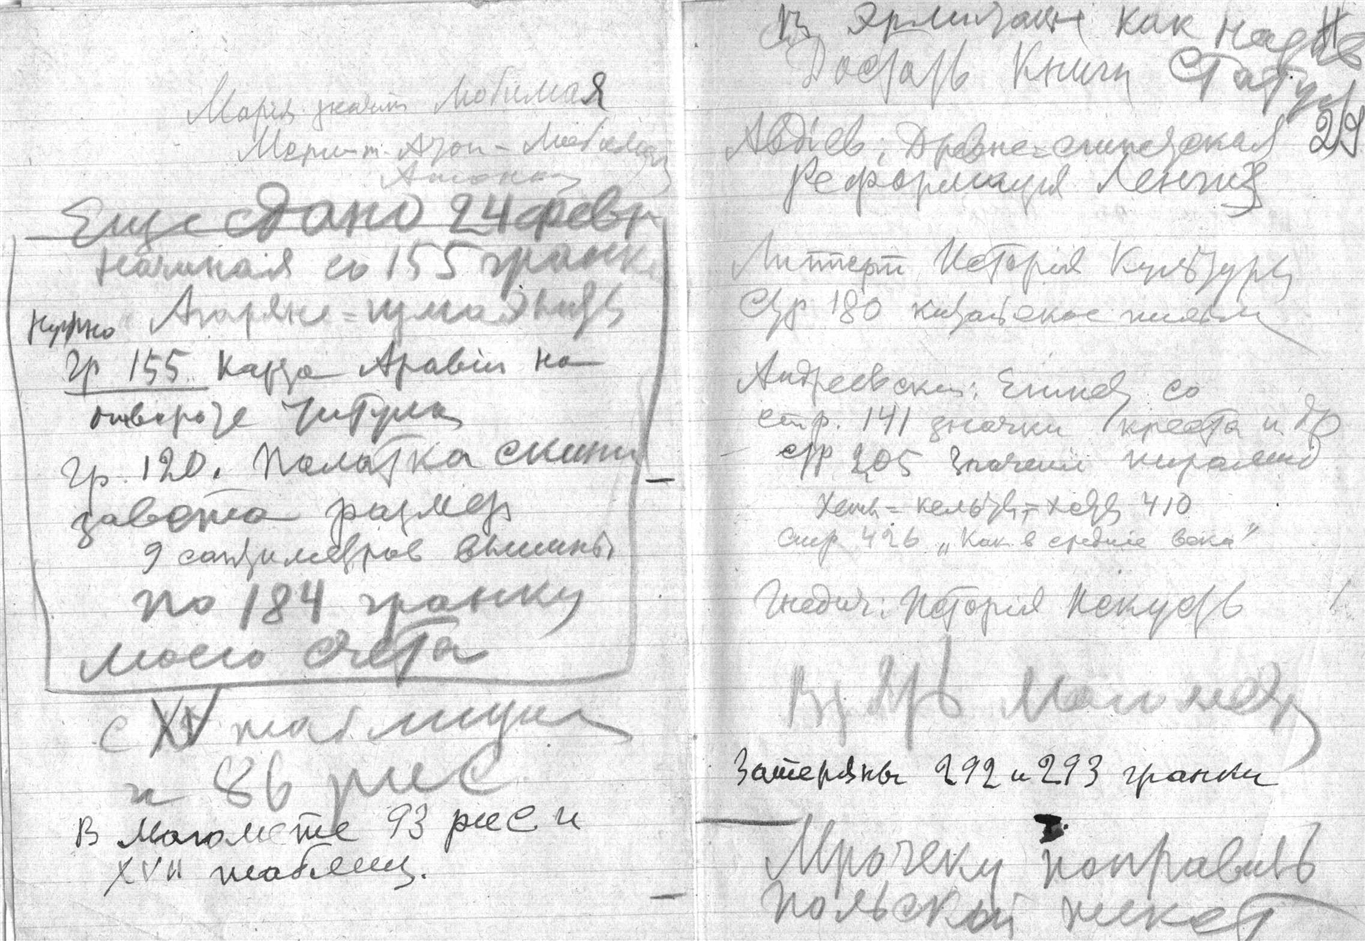 Мария значит Любимая
Мери-т-Амон = Любимица
Амона
Еще сдано 24 февр
начиная со 155 гранки
Агаряне =
нужно
гр 155 карта Аравии на
отвороте титула
гр. 120. Палатка скинии
завета размер
9 сантиметров вышины
по 184 гранку
моего счета
с XV таблицы
и 86 рис
В Магомете 93 рис и
XVII таблиц.
Эрмитаже как надо
Достать Книги Статуи
29
Авдіев: Древне-египетская
реформация
Липперт Исторія Культуры
Стр 180 китайское письмо
Андреевский: Египет со
стр. 141 значки креста и др
стр 205 Значение пирамид
410
стр 426 „Как в средние века"
Гнедич: Исторія Искусств
Взять Магомет
Затеряны 292 и 293 гранки
Мрочеку поправить
польский текст